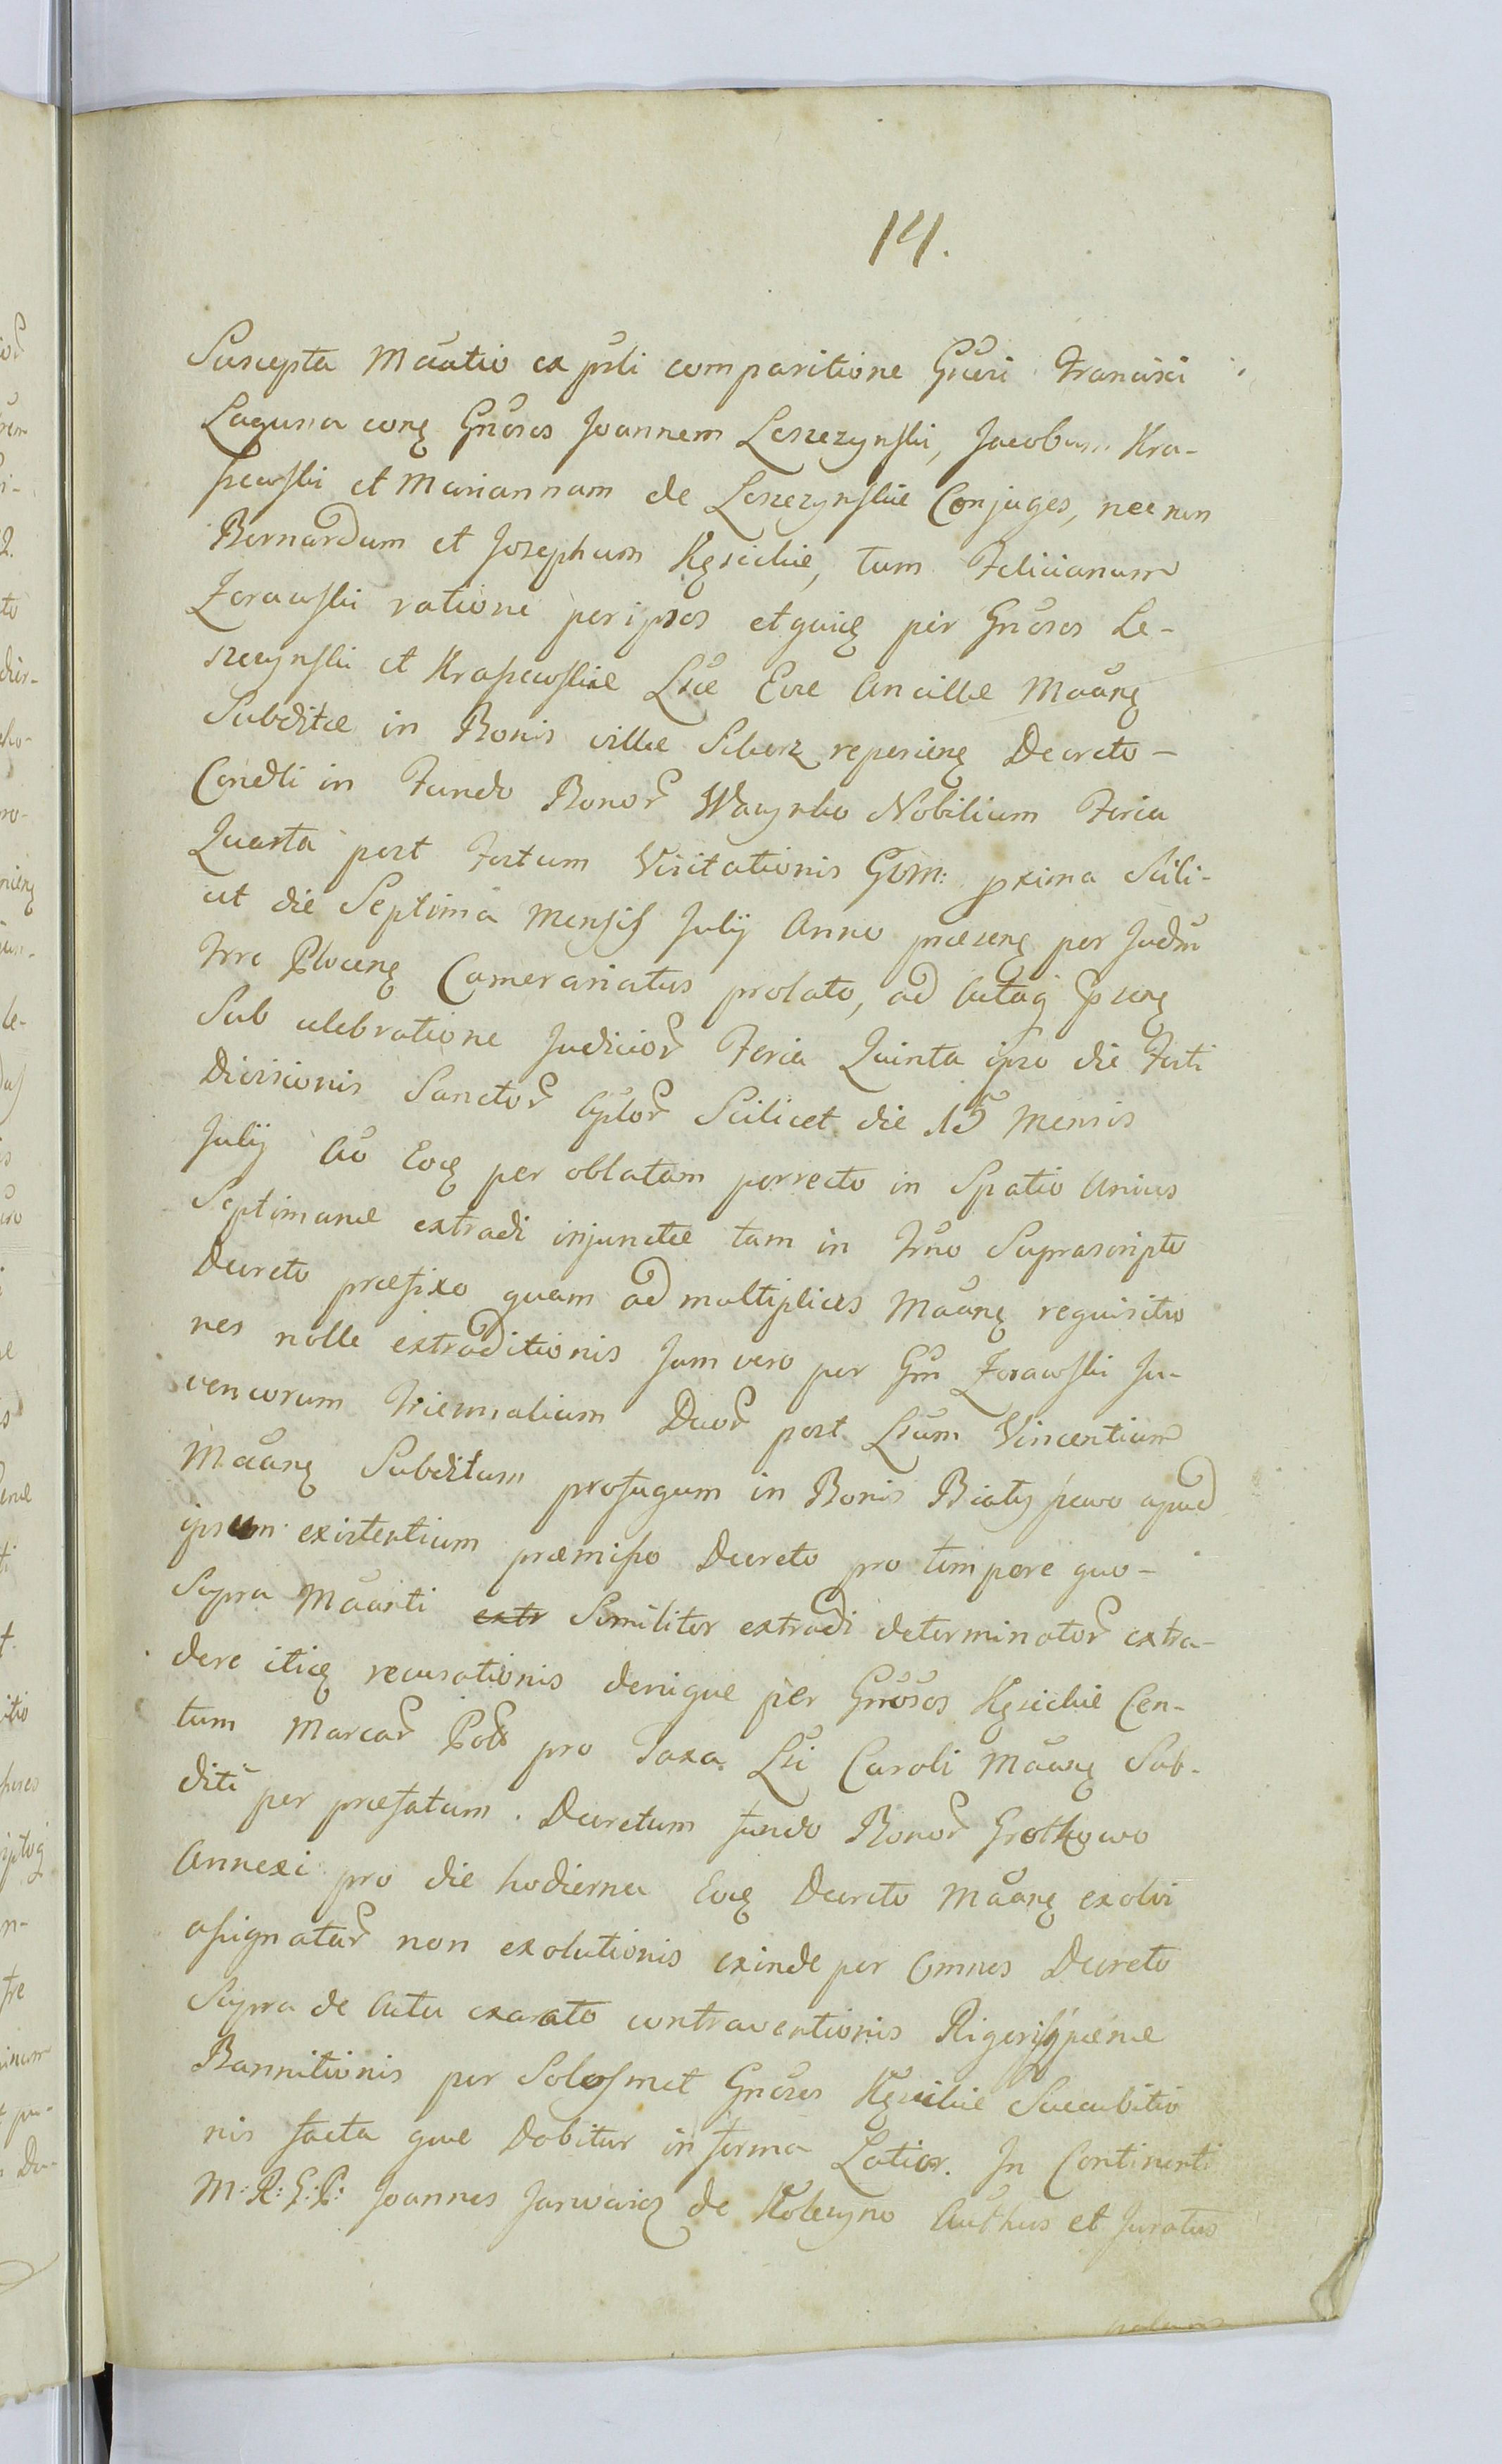 14.
Suscepta Maãtio ex pñti comparitione Gñeri Francisci
Laguna conq Gñosos Joannem Leszczynski, Jacobum Kra-
szewski et Mariannam de Leszczynskie Conjuges, nec non
Bernardum et Josephum Kęsickie, tum Felicianum
Zorawski ratione per ipsos et quidq per Gñosos Le-
szczynski et Kraszewskie Lsæ Evæ Ancillæ Mãanq
Subditæ in Bonis villæ Sikorz reperienq Decreto
Condti in Fundo Bonor Wacynko Nobilium Feria
Quarta post Festum Visitationis GVM: pxima Scili-
cet die Septima Mensis Julij Anno præsenq per Judm
Trre Plocenq Camerariatus prolato, ad Actaq psenq
Sub celebratione Judicior Feria Quinta ipso die Festi
Divisionis Sanctor Aplor Scilicet die 15 Mensis
Julij Ao Eoq per oblatam porrecto in Spatio Unius
Septimanæ extradi injunctæ tam in Trno Suprascripto
Decreto præfixo quam ad multiplices Mãanq requisitio
nes nolle extraditionis Jam vero per Gm Zorawski Ju-
vencorum Triennalium Duor post Lsum Vincentium
Mãanq Subditum profugum in Bonis Białyszewo apud
ipsum existentium præmisso Decreto pro tempore quo-
Supra Mãanti extr Similiter extradi determinator extra-
dere itidq recusationis denique per Gnosos Kęsickie Cen-
tum Marcar Pol pro Taxa Lsi Caroli Mãanq Sub-
diti per præfatum Decretum fundo Bonor Grotkowo
Annexi pro die hodierna Eoq Decreto Mãanq exolvi
assignatar non exolutionis exinde per Omnes Decreto
Supra de Actu exarato contraventionis Rigorisq pænæ
Bannitionis per Solosmet Gnosos Kęsickie Succubitio
nis facta quæ Dabitur in forma Latior. In Continenti
M:R:G:P: Joannes Jarwaicz de Koleczyno Authus et Juratus